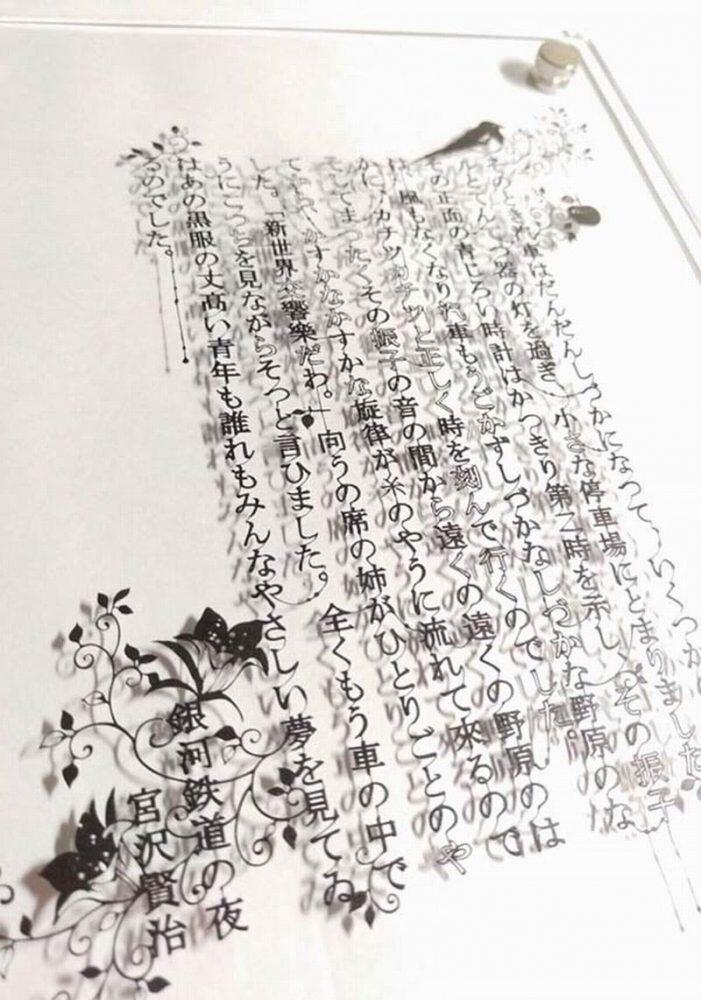 車はだんだんしづかになつて、いくつか
てんてつ器の灯を過ぎ、小さな停車場にとまりました
その正面の青じろい時計はかつきり第二時を示し、その振子
は、風もなくなり汽車もうごかずしづかなしづかな野原のな
かに、カチツカチツと正しく時を刻んで行くのでした。
そしてまつたくその振子の音の間から遠くの遠くの野原のは
てから、かすかなかすかな旋律が糸のやうに流れて來るので
した。「新世界交響樂だわ。」向うの席の姉がひとりごとのや
うにこつちを見ながらそつと言ひました。全くもう車の中で
はあの黒服の丈高い青年も誰れもみんなやさしい夢を見てゐ
るのでした。
銀河鉄道の夜
宮沢賢治